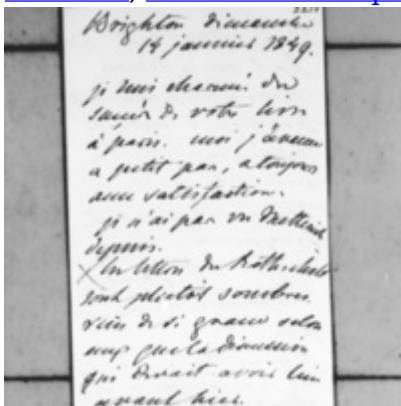 Brighton dimanche
14 janvier 1849.
je suis charmé du
succès de votre livre
à paris. moi j'avance
a petit pas, a toujours
avec satisfaction.
je n'ai pas vu
depuis.
les lettres de Rothschild
sont plutôt sombres
rien de si grave selon
que la discussion
qui devait avoir lieu
avant hier.